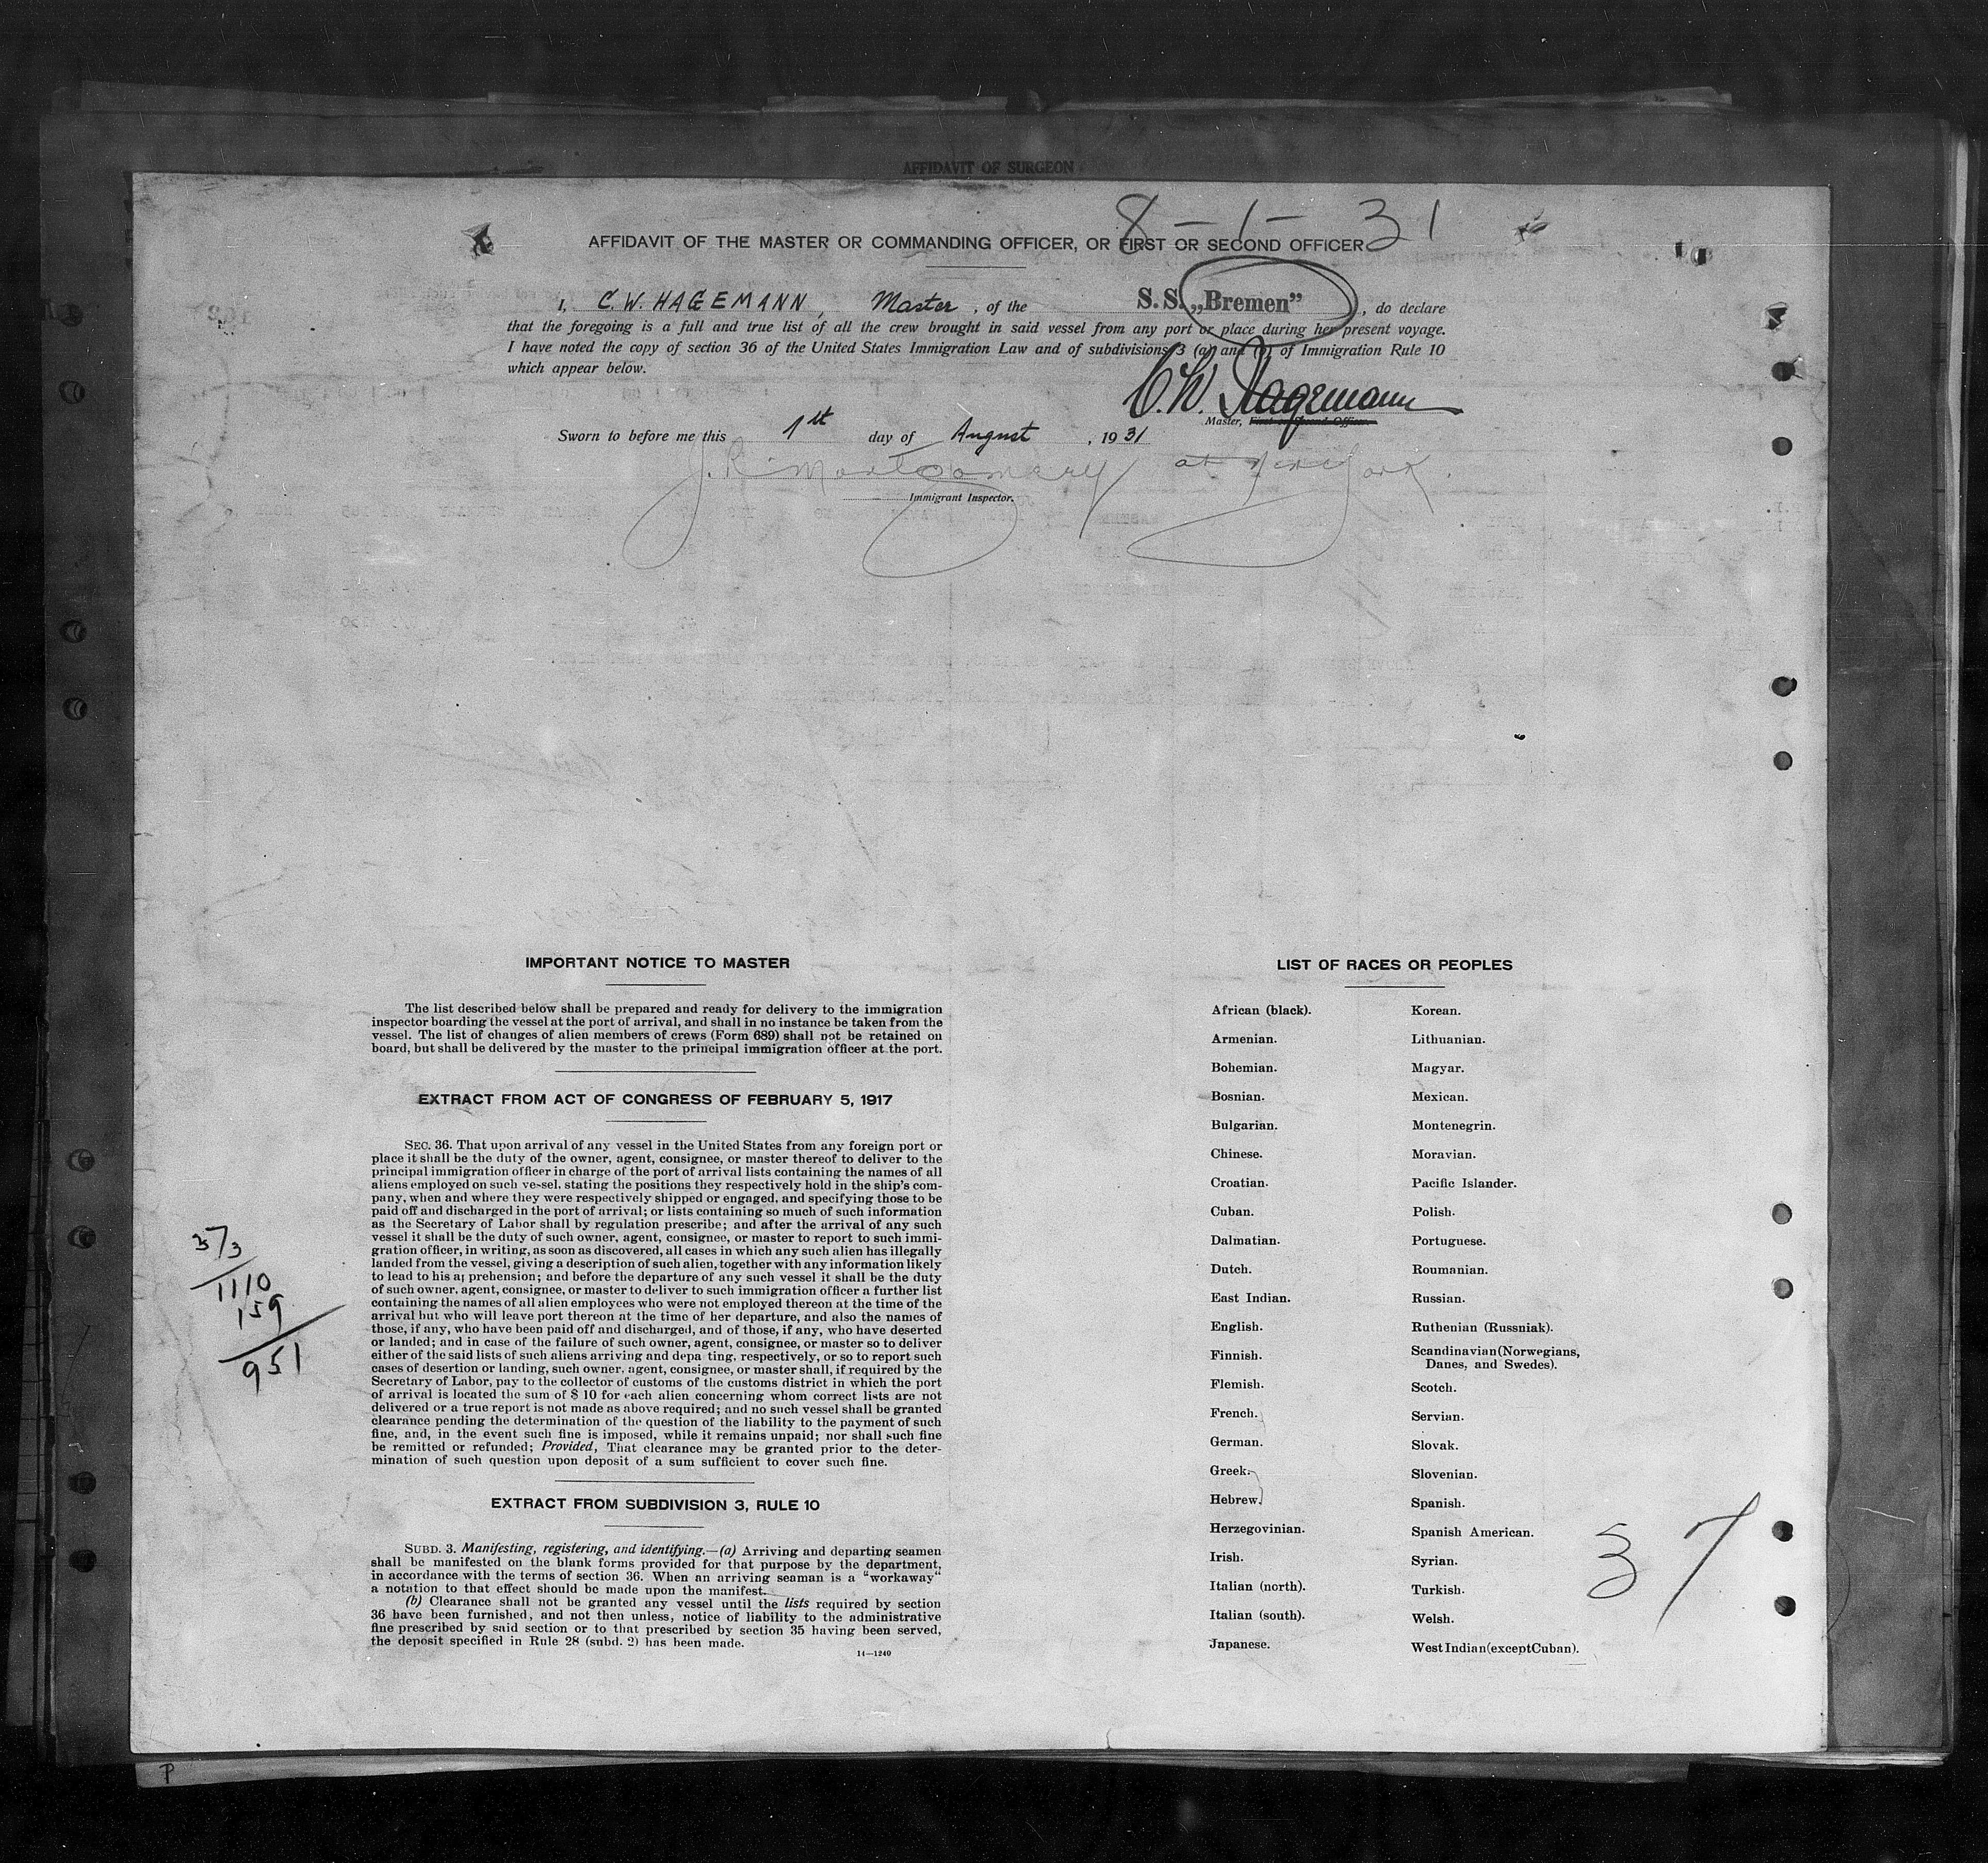 AFFIDAVIT OF SURGEON
8-1-31
AFFIDAVIT OF THE MASTER OR COMMANDING OFFICER, OR FIRST OR SECOND OFFICER
I, C. W. HAGEMANN, Master, of the S. S. „Bremen”, do declare
that the foregoing is a full and true list of all the crew brought in said vessel from any port or place during her present voyage.
I have noted the copy of section 36 of the United States Immigration Law and of subdivisions 3 (a) and (b) of Immigration Rule 10
which appear below.
C. W. Hagemann
Master, First or Second Officer.
Sworn to before me this 1st day of August, 1931
J. R. Montgomery at New York.
Immigrant Inspector.
IMPORTANT NOTICE TO MASTER
The list described below shall be prepared and ready for delivery to the immigration
inspector boarding the vessel at the port of arrival, and shall in no instance be taken from the
vessel. The list of changes of alien members of crews (Form 689) shall not be retained on
board, but shall be delivered by the master to the principal immigration officer at the port.
EXTRACT FROM ACT OF CONGRESS OF FEBRUARY 5, 1917
SEC. 36. That upon arrival of any vessel in the United States from any foreign port or
place it shall be the duty of the owner, agent, consignee, or master thereof to deliver to the
principal immigration officer in charge of the port of arrival lists containing the names of all
aliens employed on such vessel, stating the positions they respectively hold in the ship's com-
pany, when and where they were respectively shipped or engaged, and specifying those to be
paid off and discharged in the port of arrival; or lists containing so much of such information
as the Secretary of Labor shall by regulation prescribe; and after the arrival of any such
vessel it shall be the duty of such owner, agent, consignee, or master to report to such immi-
gration officer, in writing, as soon as discovered, all cases in which any such alien has illegally
landed from the vessel, giving a description of such alien, together with any information likely
to lead to his ap prehension; and before the departure of any such vessel it shall be the duty
of such owner, agent, consignee, or master to deliver to such immigration officer a further list
containing the names of all alien employees who were not employed thereon at the time of the
arrival but who will leave port thereon at the time of her departure, and also the names of
those, if any, who have been paid off and discharged, and of those, if any, who have deserted
or landed; and in case of the failure of such owner, agent, consignee, or master so to deliver
either of the said lists of such aliens arriving and depa ting, respectively, or so to report such
cases of desertion or landing, such owner, agent, consignee, or master shall, if required by the
Secretary of Labor, pay to the collector of customs of the customs district in which the port
of arrival is located the sum of $ 10 for each alien concerning whom correct lists are not
delivered or a true report is not made as above required; and no such vessel shall be granted
clearance pending the determination of the question of the liability to the payment of such
fine, and, in the event such fine is imposed, while it remains unpaid; nor shall such fine
be remitted or refunded; Provided, That clearance may be granted prior to the deter-
mination of such question upon deposit of a sum sufficient to cover such fine.
EXTRACT FROM SUBDIVISION 3, RULE 10
SUBD. 3. Manifesting, registering, and identifying.—(a) Arriving and departing seamen
shall be manifested on the blank forms provided for that purpose by the department,
in accordance with the terms of section 36. When an arriving seaman is a "workaway"
a notation to that effect should be made upon the manifest.
(b) Clearance shall not be granted any vessel until the lists required by section
36 have been furnished, and not then unless, notice of liability to the administrative
fine prescribed by said section or to that prescribed by section 35 having been served,
the deposit specified in Rule 28 (subd. 2) has been made.
14—1240
37/3
1110
159
951
LIST OF RACES OR PEOPLES
African (black).
Armenian.
Bohemian.
Bosnian.
Bulgarian.
Chinese.
Croatian.
Cuban.
Dalmatian.
Dutch.
East Indian.
English.
Finnish.
Flemish.
French.
German.
Greek.
Hebrew.
Herzegovinian.
Irish.
Italian (north).
Italian (south).
Japanese.
Korean.
Lithuanian.
Magyar.
Mexican.
Montenegrin.
Moravian.
Pacific Islander.
Polish.
Portuguese.
Roumanian.
Russian.
Ruthenian (Russniak).
Scandinavian (Norwegians,
Danes, and Swedes).
Scotch.
Servian.
Slovak.
Slovenian.
Spanish.
Spanish American.
Syrian.
Turkish.
Welsh.
West Indian (except Cuban).
37
P